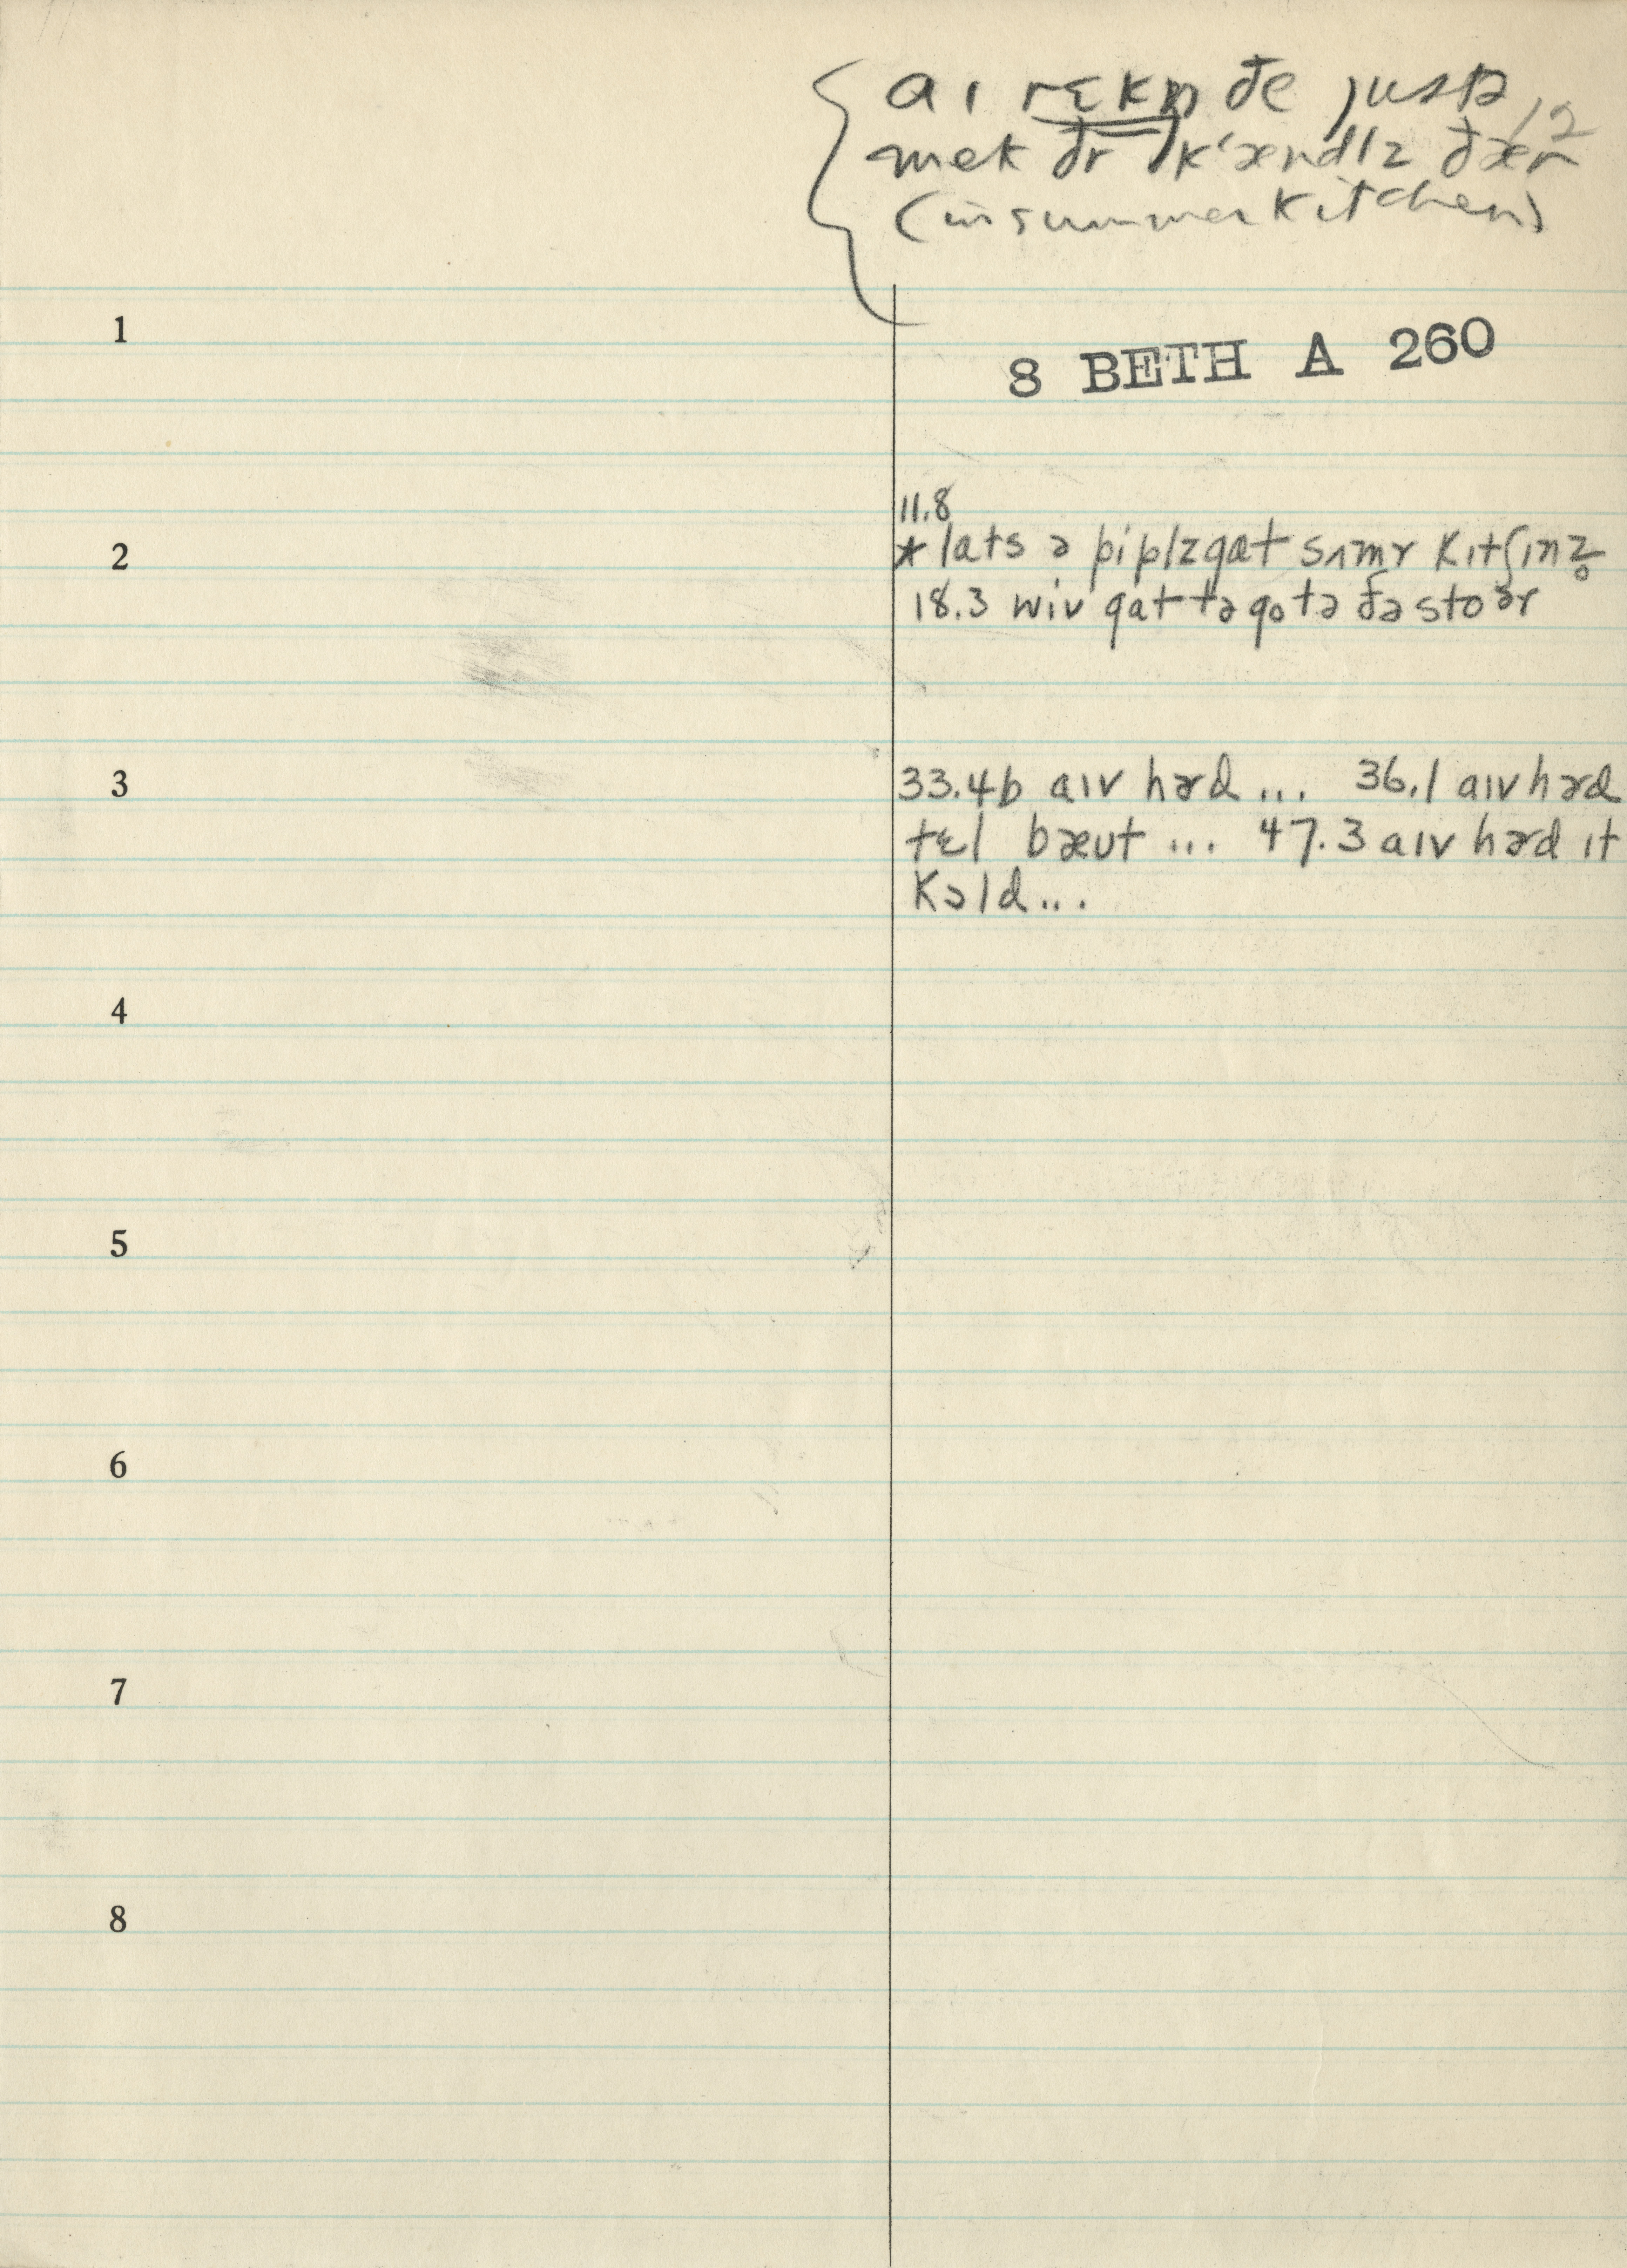 aɪ rɛkn̩ đe justə
12
mek đr k‘ændlz đær
(in summer kitchen)
1
8 BETH A 260
11.8
2
* lats ə piplz gat sʌmr kɪtʃɪnz̥
18.3 wiv gat tə go tə đə stoᵊr
3
33.4b aɪv hɚd ... 36.1 aɪv hɚd
tɛl bæut ... 47.3 aɪv hɚd ɪt
kɔld ...
4
5
6
7
8